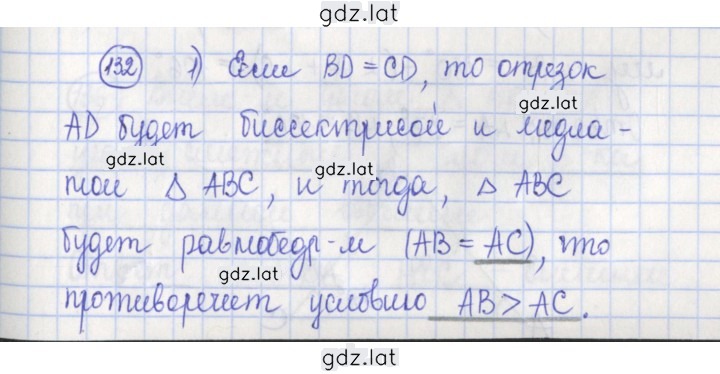 gdz.lat
132 1) Если BD = CD, то отрезок
gdz.lat
AD будет биссектрисой и медиа-
gdz.lat
gdz.lat
ной △ ABC, и тогда, △ ABC
gdz.lat
будет равнобедр-м (AB = AC), что
gdz.lat
противоречит условию AB > AC.
gdz.lat